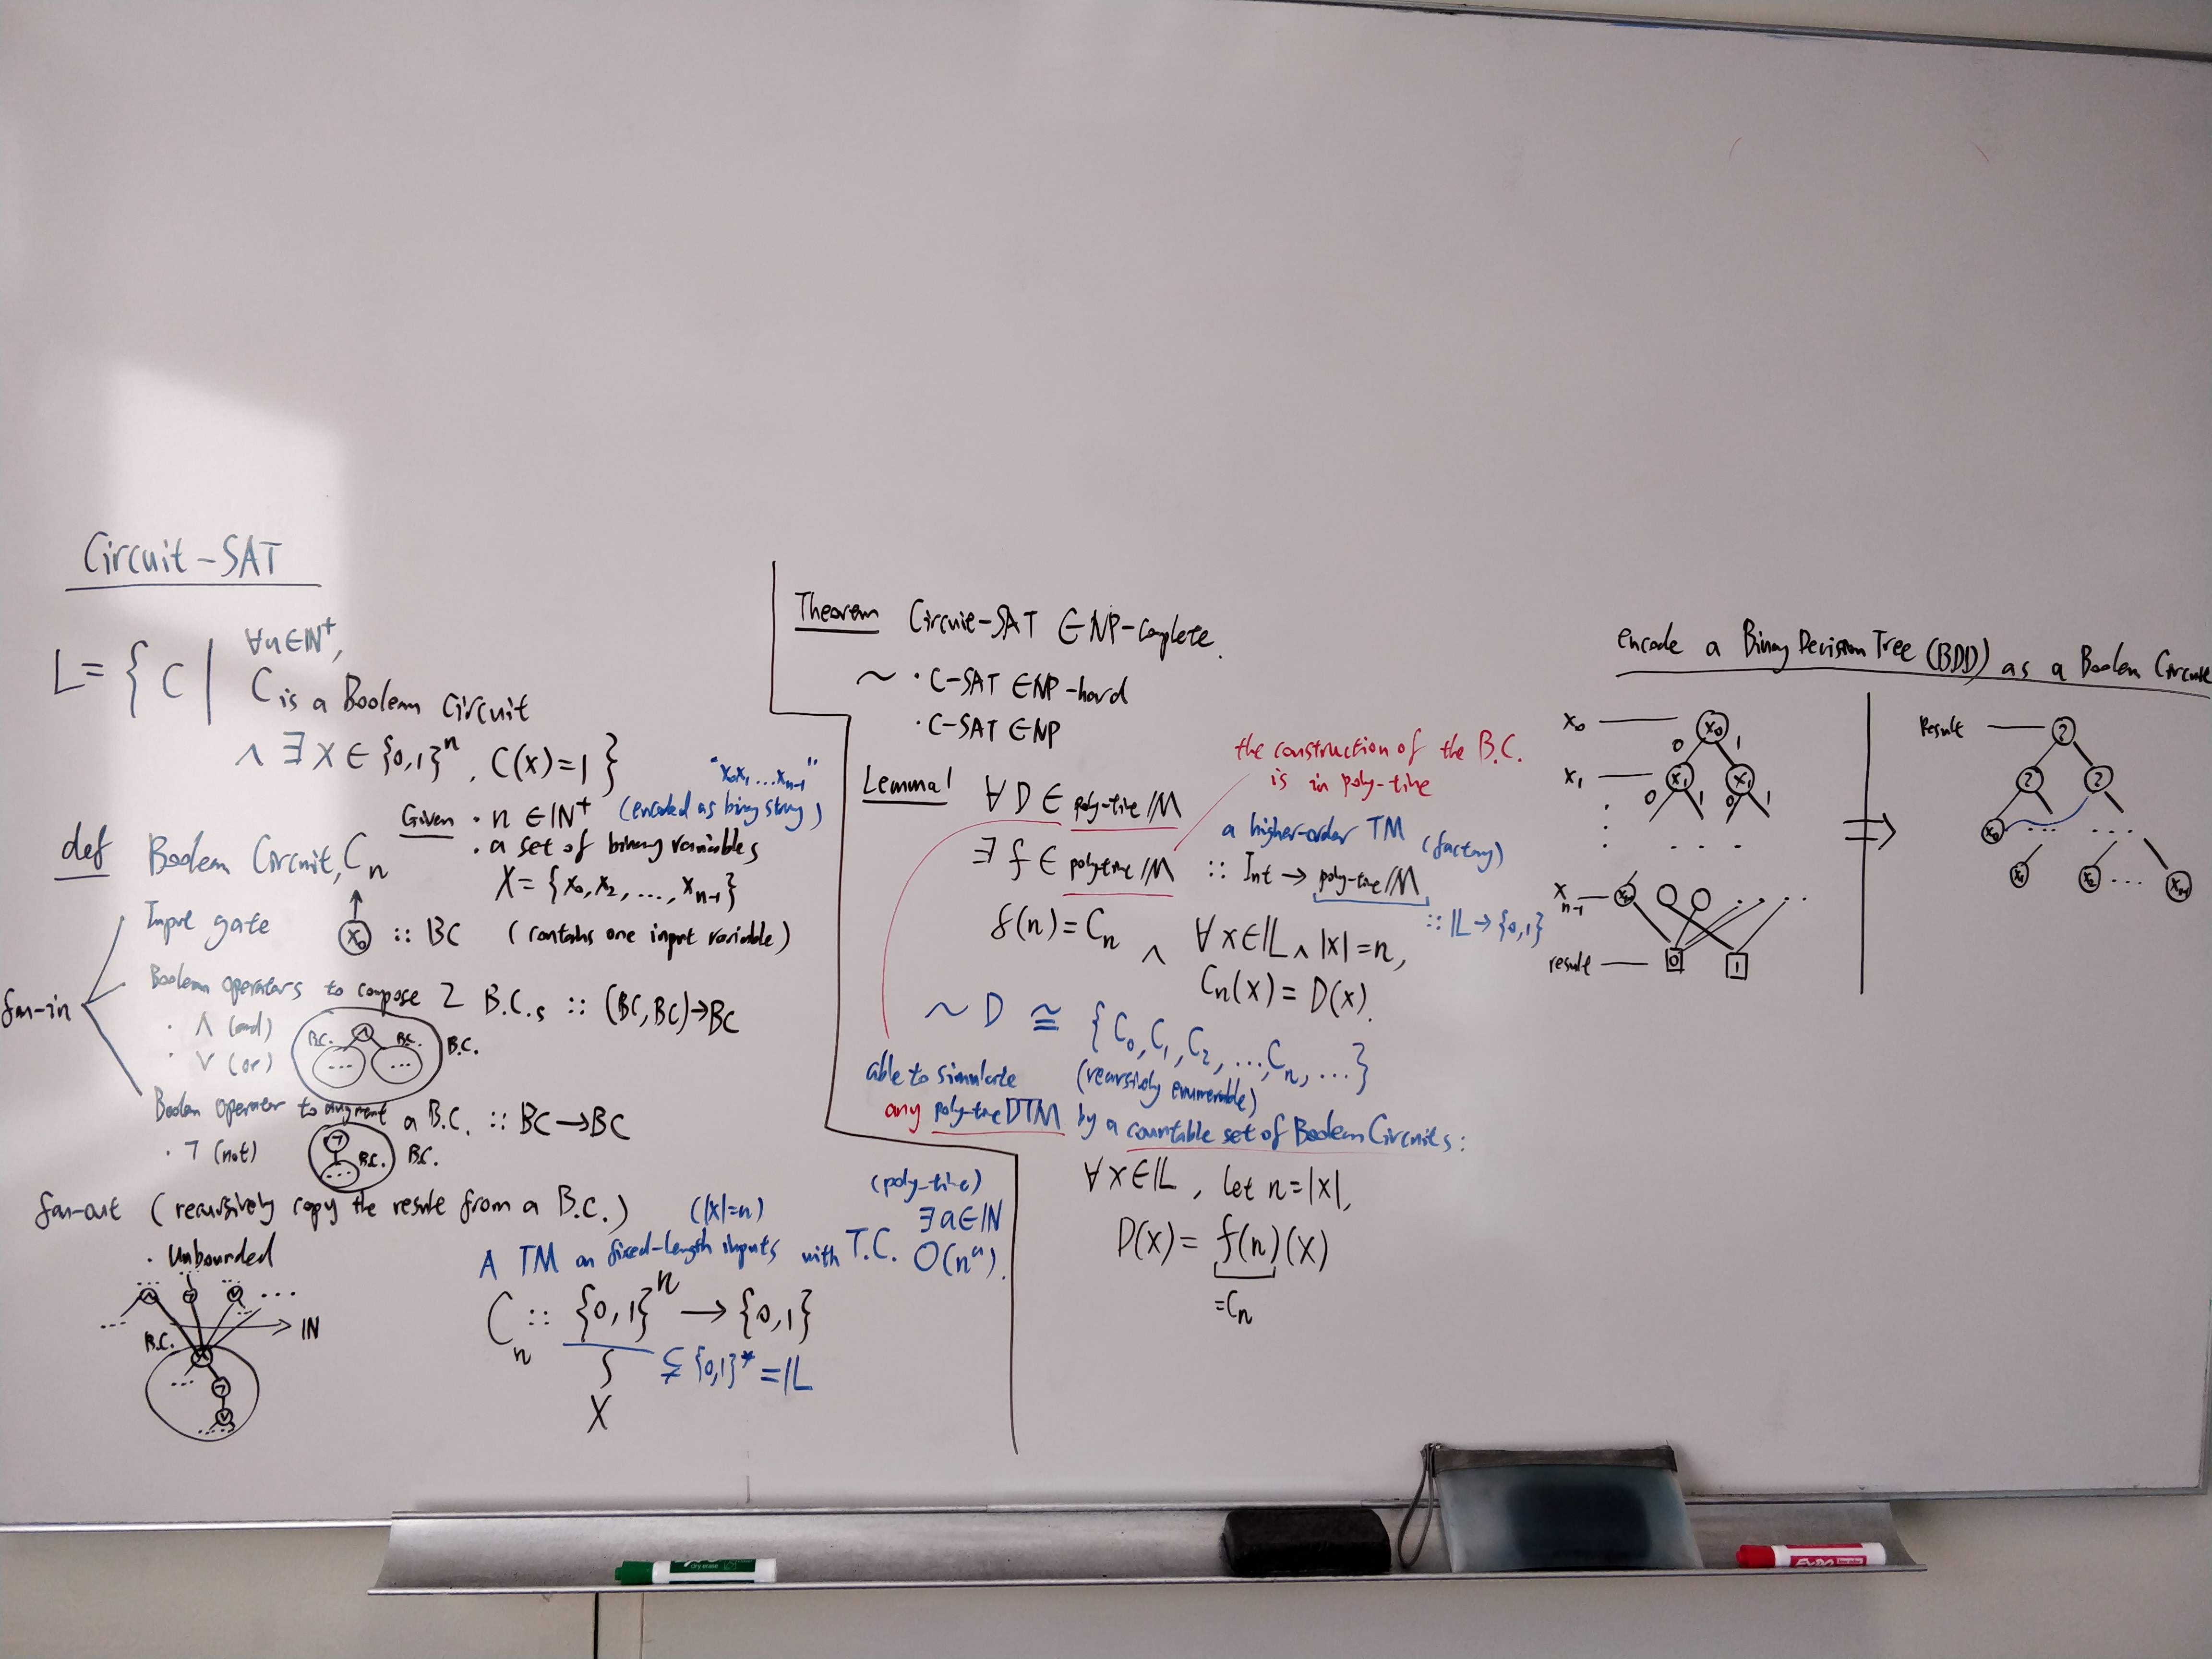 Circuit-SAT
L = { C | ∀n∈ℕ⁺,
C is a Boolean Circuit
∧ ∃ x ∈ {0,1}ⁿ, C(x)=1 }
def Boolean Circuit, Cₙ
Given · n ∈ ℕ⁺
· a set of binary variables
X = {x₀, x₂, ..., xₙ₋₁}
"x₀x₁...xₙ₋₁"
(encoded as binary string)
fan-in
Input gate
x₀ :: BC (contains one input variable)
Boolean operators to compose 2 B.C.s :: (BC, BC)→BC
· ∧ (and)
· ∨ (or)
B.C. ∧ B.C. B.C.
... ...
Boolean operator to augment a B.C. :: BC→BC
· ¬ (not)
¬ B.C. B.C.
...
fan-out (recursively copy the result from a B.C.)
· Unbounded
∧ ¬ ∨ ...
B.C. → ℕ
... ¬
∨
(|x|=n) (poly-time)
A TM on fixed-length inputs with T.C. ∃a∈ℕ O(nᵃ).
Cₙ :: {0,1}ⁿ → {0,1}
⊊ {0,1}* = 𝕃
X
Theorem Circuit-SAT ∈ NP-complete.
~ · C-SAT ∈ NP-hard
· C-SAT ∈ NP
Lemma 1 ∀ D ∈ poly-time TM
the construction of the B.C.
is in poly-time
∃ f ∈ poly-time TM :: Int → poly-time TM
a higher-order TM (factory)
:: 𝕃 → {0,1}
f(n) = Cₙ ∧ ∀ x∈𝕃 ∧ |x|=n,
Cₙ(x) = D(x).
~ D ≅ {C₀, C₁, C₂, ..., Cₙ, ...}
(recursively enumerable)
able to simulate
any poly-time DTM by a countable set of Boolean Circuits:
∀ x∈𝕃, let n=|x|,
D(x) = f(n)(x)
=Cₙ
encode a Binary Decision Tree (BDD) as a Boolean Circuit
x₀ x₀
0 1
x₁ x₁ x₁
0 1 0 1
...
xₙ₋₁
result 0 1
⇒
Result ?
? ?
x₀ ... ...
x₂ ...